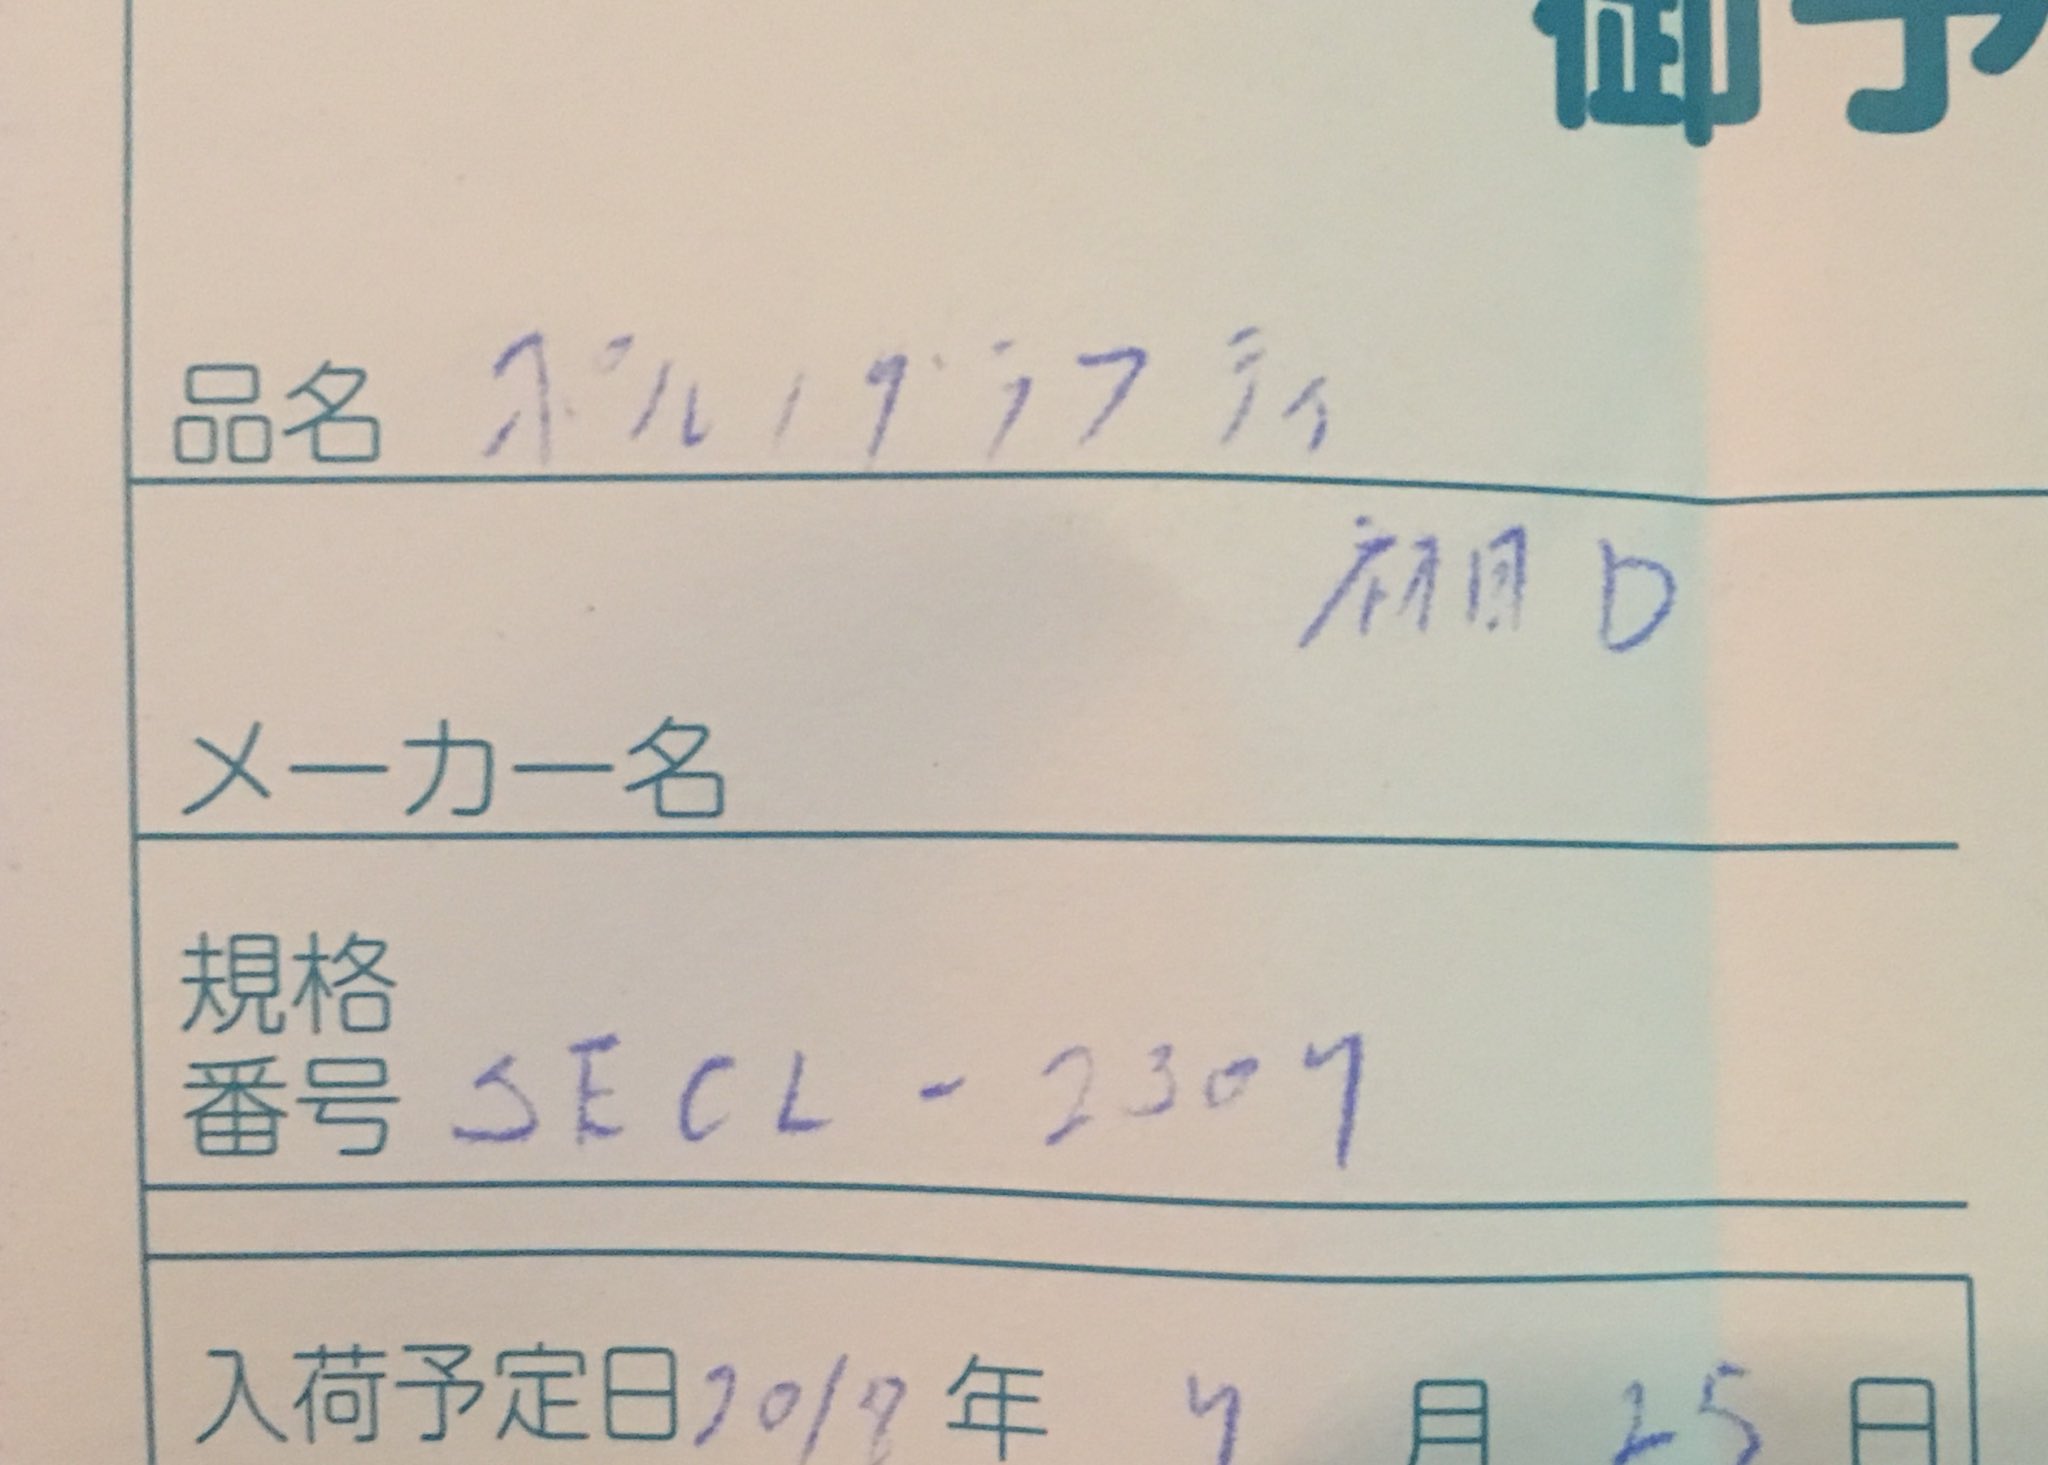 御予
品名 ポルノグラフティ
初回D
メーカー名
規格
番号 SECL-2307
入荷予定日 2018年 7月 25日